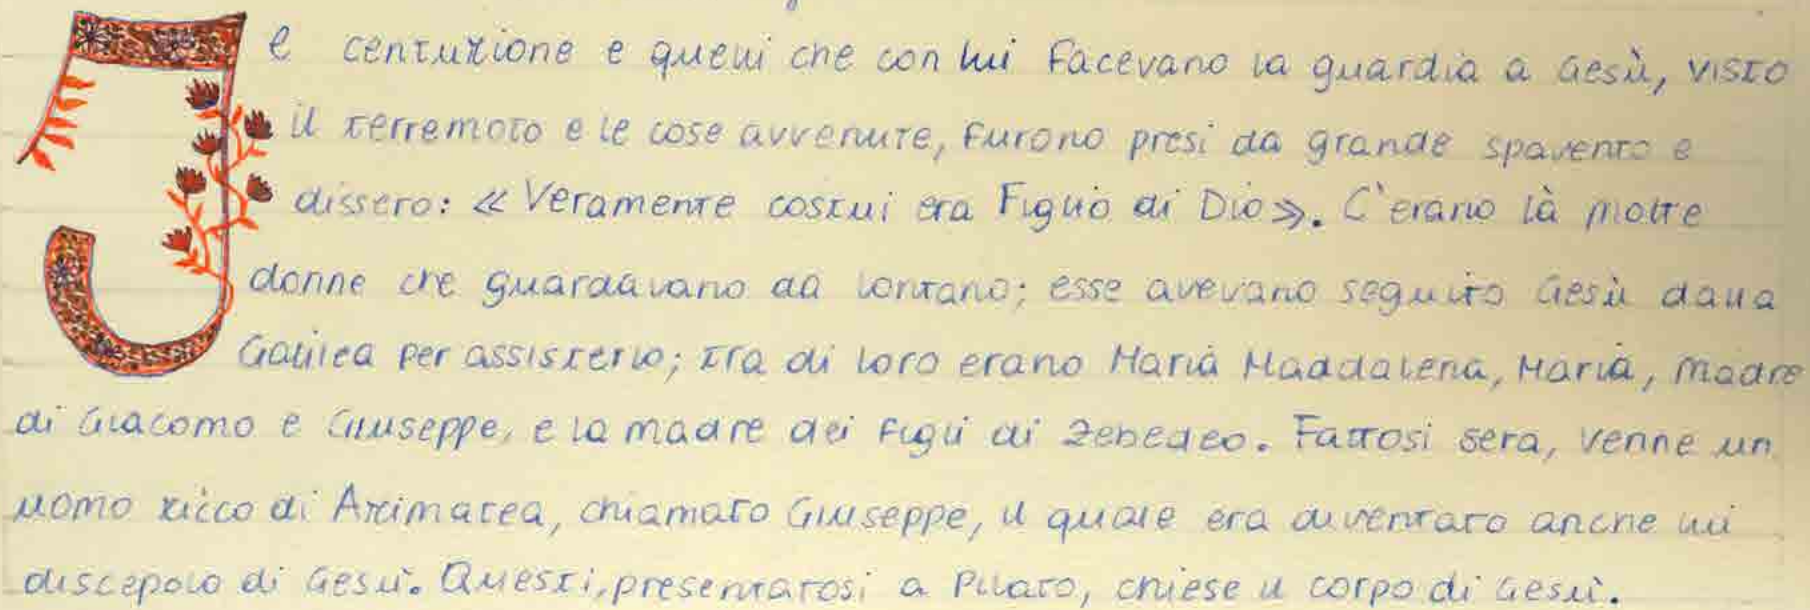 Il centurione e quelli che con lui facevano la guardia a Gesù, visto
il terremoto e le cose avvenute, furono presi da grande spavento e
dissero: «Veramente costui era Figlio di Dio». C'erano là molte
donne che guardavano da lontano; esse avevano seguito Gesù dalla
Galilea per assisterlo; tra di loro erano Maria Maddalena, Maria, madre
di Giacomo e Giuseppe, e la madre dei figli di Zebedeo. Fattosi sera, venne un
uomo ricco di Arimatea, chiamato Giuseppe, il quale era diventato anche lui
discepolo di Gesù. Questi, presentatosi a Pilato, chiese il corpo di Gesù.